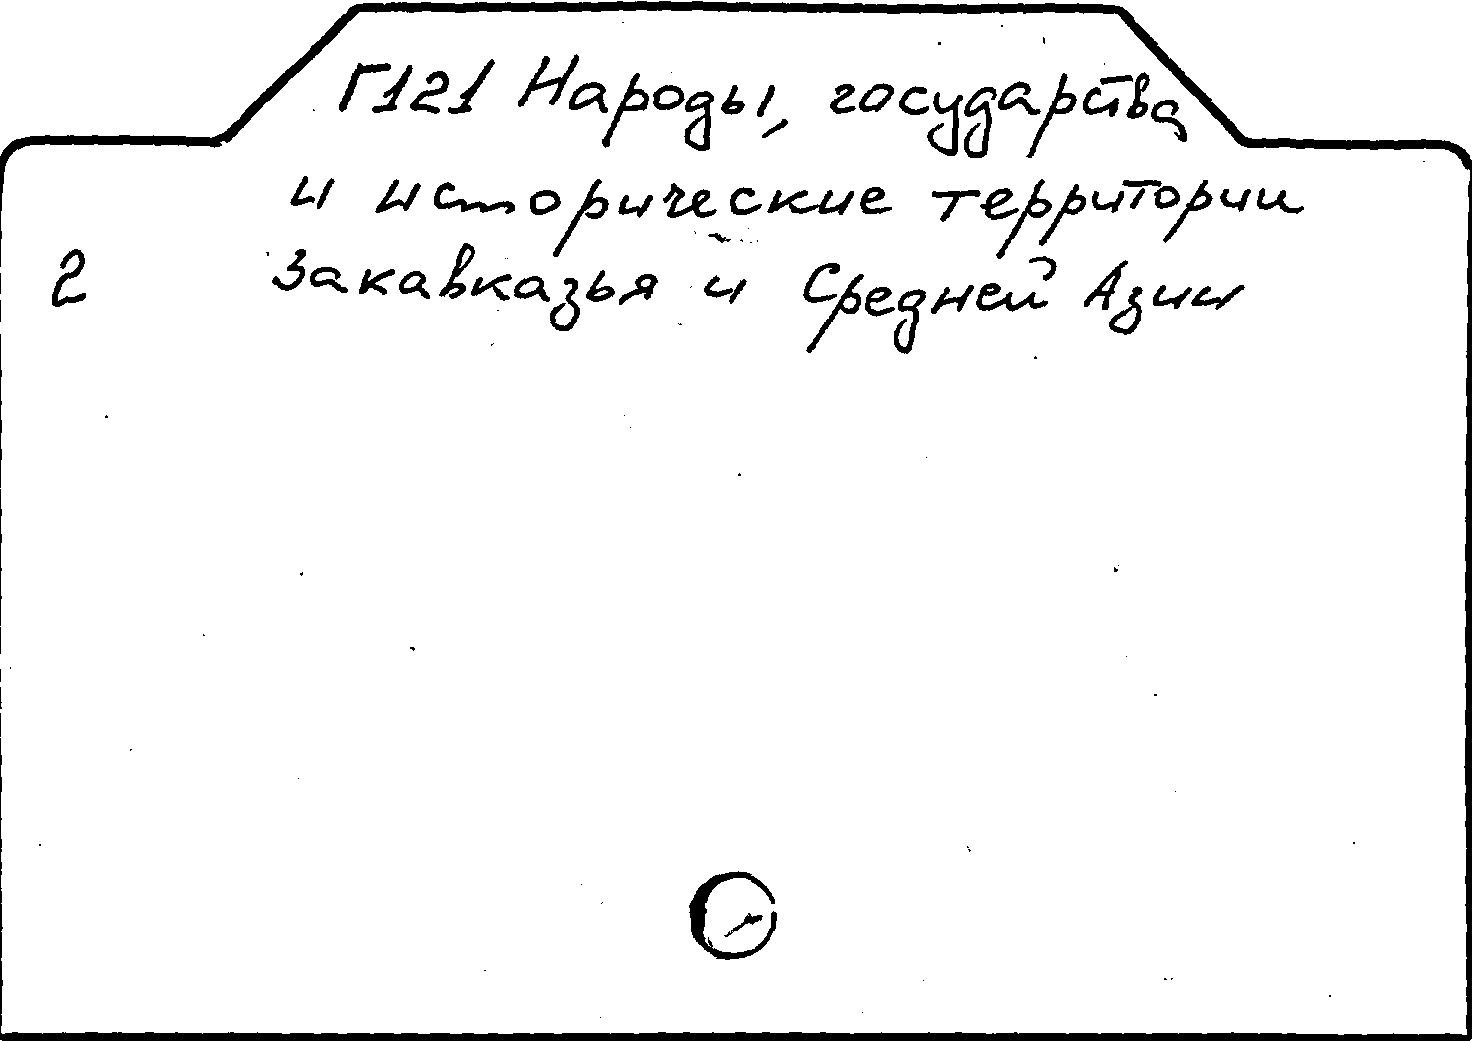 Г121 Народы, государства
и исторические территории
2 Закавказья и Средней Азии